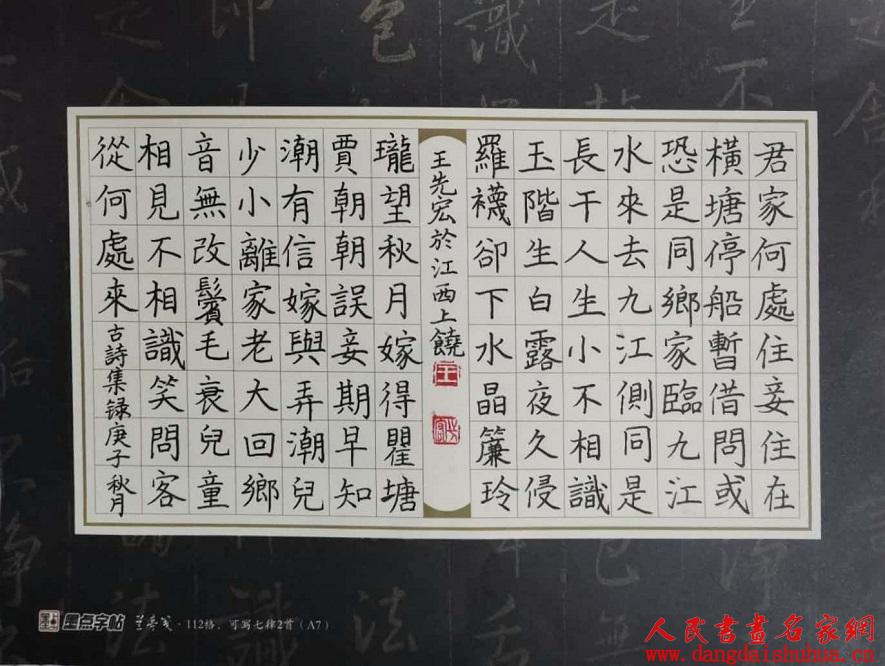 君家何處住妾住在
橫塘停船暫借問或
恐是同鄉家臨九江
水來去九江側同是
長干人生小不相識
玉階生白露夜久侵
羅襪卻下水晶簾玲
王先宏於江西上饒
瓏望秋月嫁得瞿塘
賈朝朝誤妾期早知
潮有信嫁與弄潮兒
少小離家老大回鄉
音無改鬢毛衰兒童
相見不相識笑問客
從何處來古詩集録庚子秋月
墨点字帖 兰亭笺·112格，可写七律2首（A7）
人民書畫名家網
www.dangdaishuhua.cn